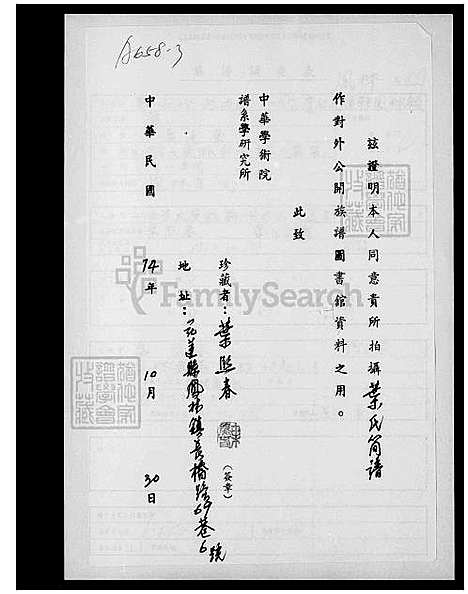 A658-3
茲證明本人同意貴所拍攝葉氏简譜
作對外公開族譜圖書館資料之用。
此致
中華學術院
譜系學研究所
珍藏者：葉熙春
(簽章)
地址：花蓮縣鳳林鎮長橋路69巷6號
中華民國74年10月30日
FamilySearch